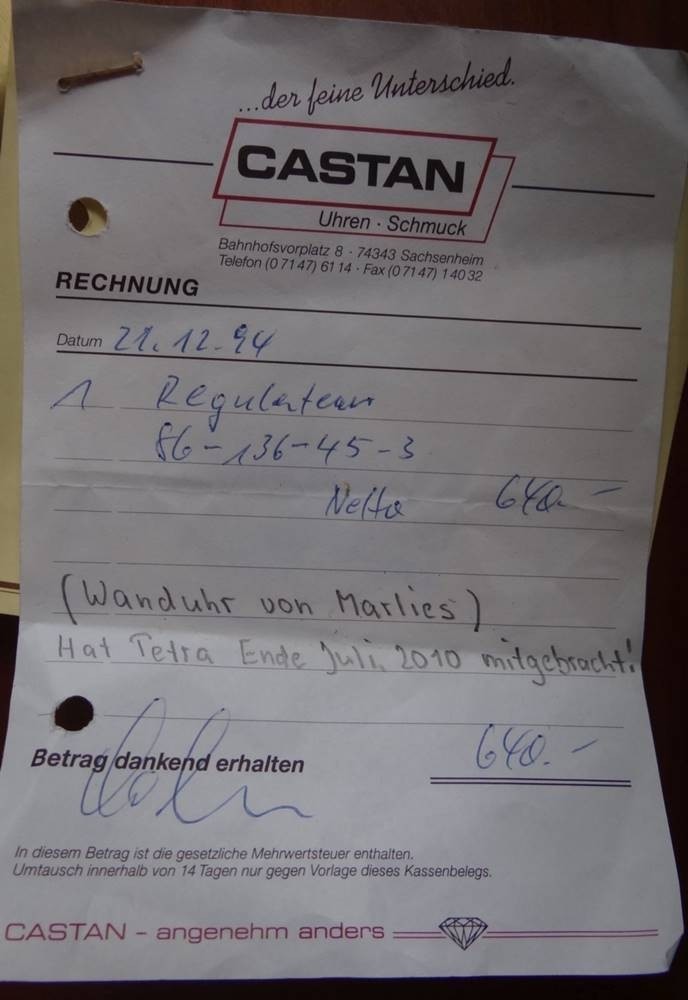 ...der feine Unterschied.
CASTAN
Uhren · Schmuck
Bahnhofsvorplatz 8 · 74343 Sachsenheim
Telefon (0 71 47) 61 14 · Fax (0 71 47) 1 40 32
RECHNUNG
Datum 21.12.94
1 Regulateur
86-136-45-3
Netto 640.-
(Wanduhr von Marlies)
Hat Petra Ende Juli 2010 mitgebracht!
640.-
Betrag dankend erhalten
In diesem Betrag ist die gesetzliche Mehrwertsteuer enthalten.
Umtausch innerhalb von 14 Tagen nur gegen Vorlage dieses Kassenbelegs.
CASTAN – angenehm anders